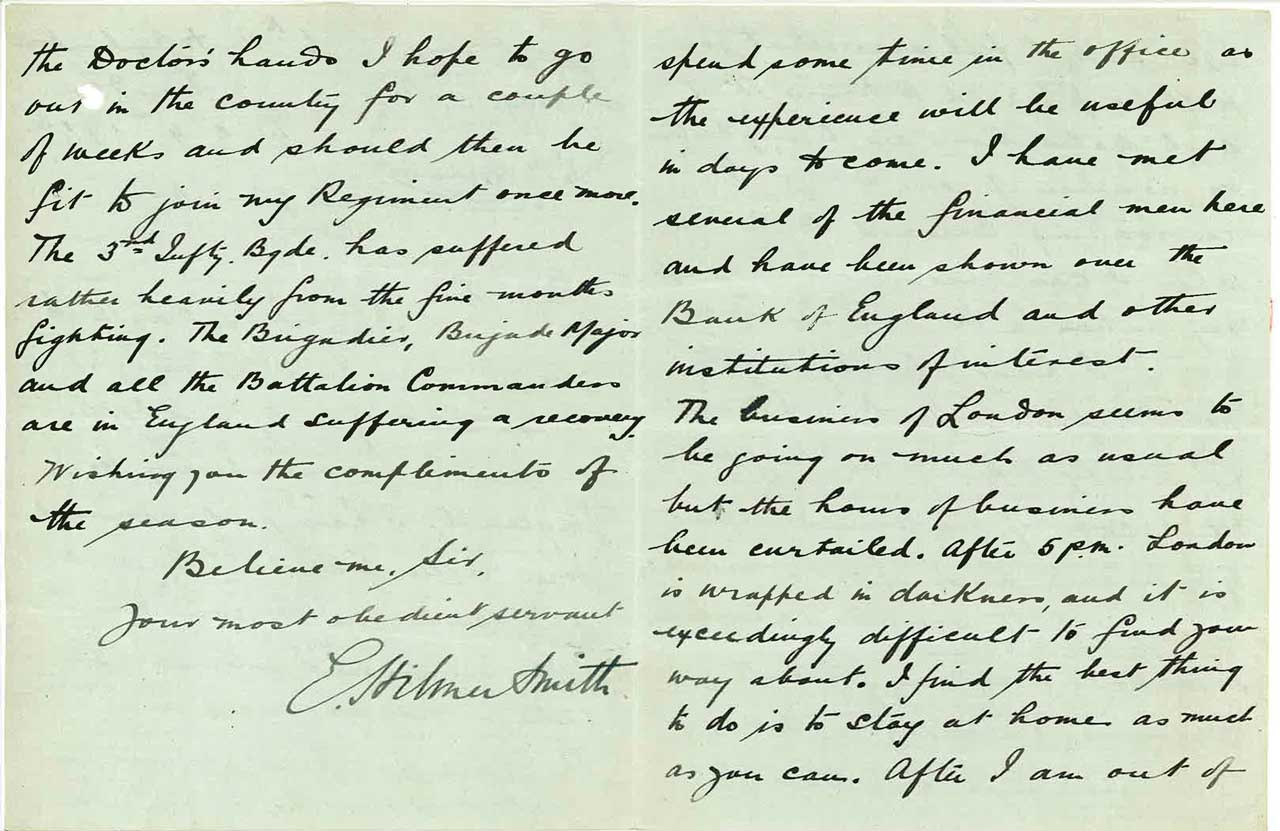 spend some time in the office as
the experience will be useful
in days to come. I have met
several of the financial men here
and have been shown over the
Bank of England and other
institutions of interest.
The business of London seems to
be going on much as usual
but the hours of business have
been curtailed. After 5 p.m. London
is wrapped in darkness, and it is
exceedingly difficult to find your
way about. I find the best thing
to do is to stay at home as much
as you can. After I am out of
the Doctor's hands I hope to go
out in the country for a couple
of weeks and should then be
fit to join my Regiment once more.
The 3rd Infty. Bgde. has suffered
rather heavily from the five months
fighting. The Brigadier, Brigade Major
and all the Battalion Commanders
are in England suffering a recovery
Wishing you the compliments of
the season.
Believe me, Sir,
Your most obedient servant
E. Hilmer Smith